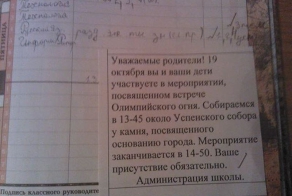 ПЯТНИЦА
19
Уважаемые родители! 19
октября вы и ваши дети
участвуете в мероприятии,
посвященном встрече
Олимпийского огня. Собираемся
в 13-45 около Успенского собора
у камня, посвященного
основанию города. Мероприятие
заканчивается в 14-50. Ваше
присутствие обязательно.
Администрация школы.
Подпись классного руководите